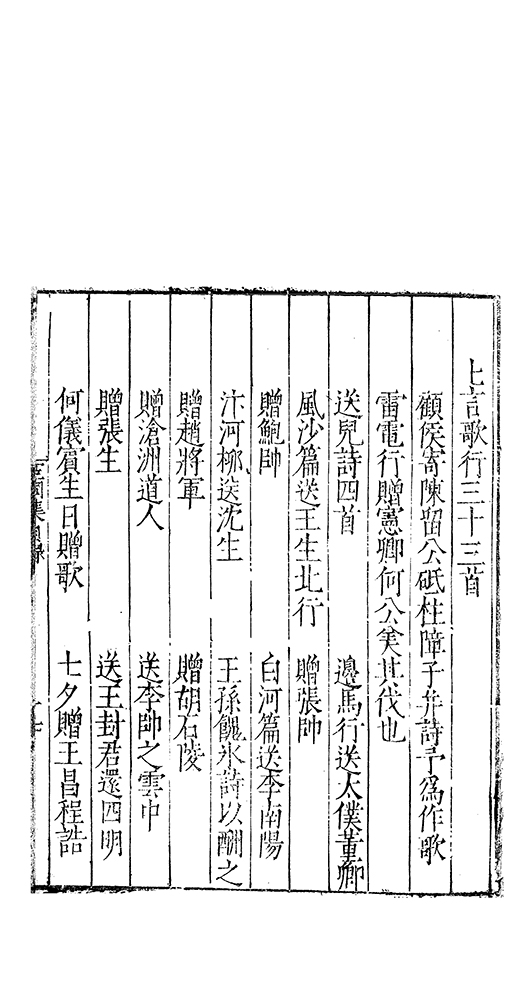 七言歌行三十三首
顧侯寄陳留公砥柱障子并詩予為作歌
雷電行贈憲卿何公美其伐也
送兒詩四首　邊馬行送太僕董卿
風沙篇送王生北行　贈張帥
贈鮑帥　白河篇送李南陽
汴河柳送沈生　王孫餽氷詩以酬之
贈趙將軍　贈胡石陵
贈滄洲道人　送李帥之雲中
贈張生　送王封君還四明
何儀賓生日贈歌　七夕贈王昌程誥
集目錄